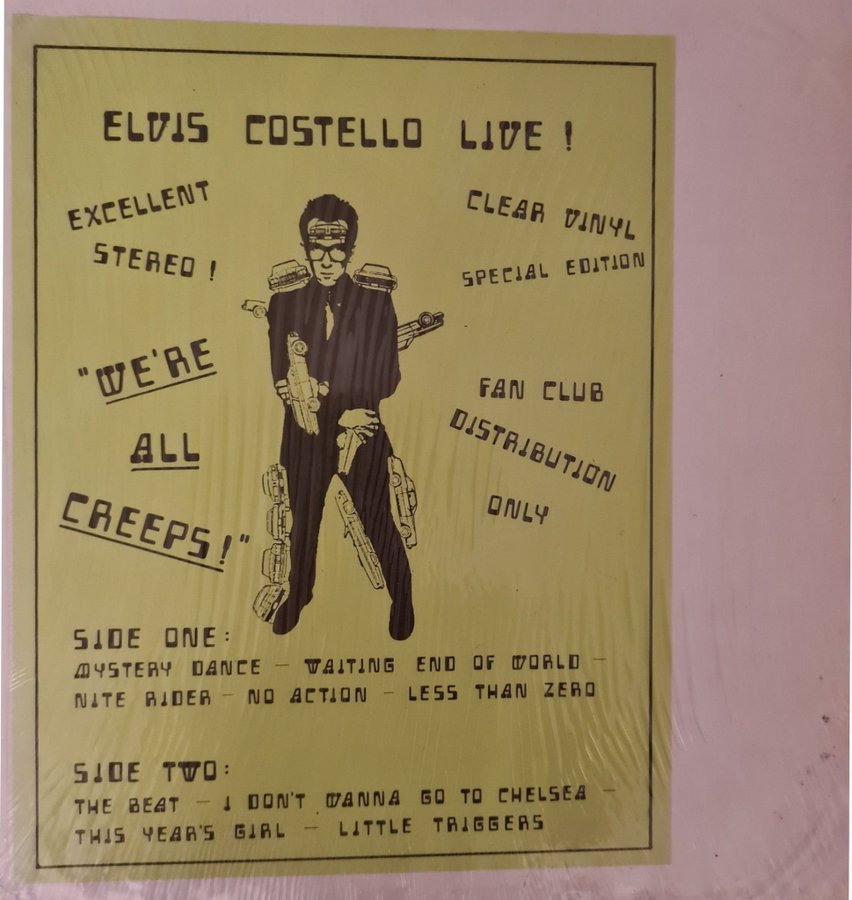 ELVIS COSTELLO LIVE !
EXCELLENT
STEREO !
CLEAR VINYL
SPECIAL EDITION
"WE'RE
ALL
CREEPS!"
FAN CLUB
DISTRIBUTION
ONLY
SIDE ONE:
MYSTERY DANCE – WAITING END OF WORLD –
NITE RIDER – NO ACTION – LESS THAN ZERO
SIDE TWO:
THE BEAT – I DON'T WANNA GO TO CHELSEA –
THIS YEAR'S GIRL – LITTLE TRIGGERS